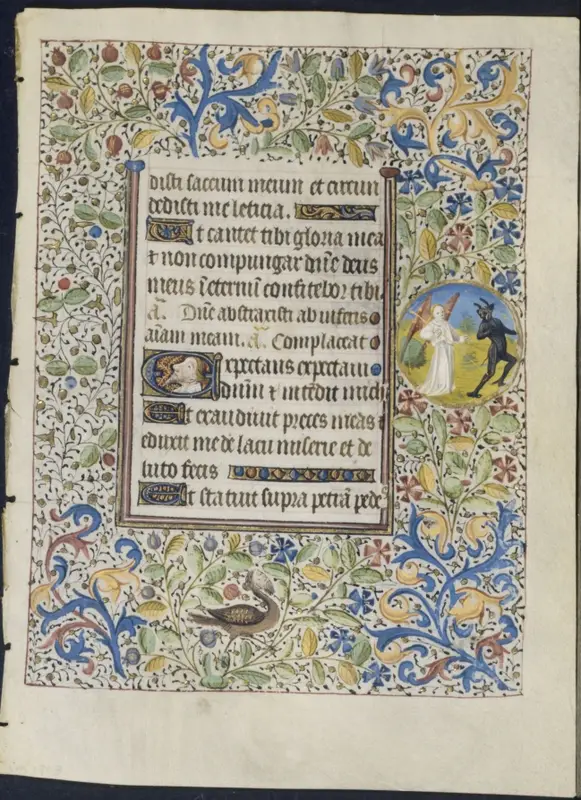 disti saccum meum et circun
dedisti me leticia.
Ut cantet tibi gloria mea
et non compungar dñe deus
meus ĩeternũ confitebor tibi.
A. Dñe abstraxisti ab inferis
aĩam meam. A. Complaceat
Expectans expectaui
dñm et intẽdit michi
Et exaudiuit preces meas et
eduxit me de lacu miserie et de
luto fecis
Et statuit supra petrã pede